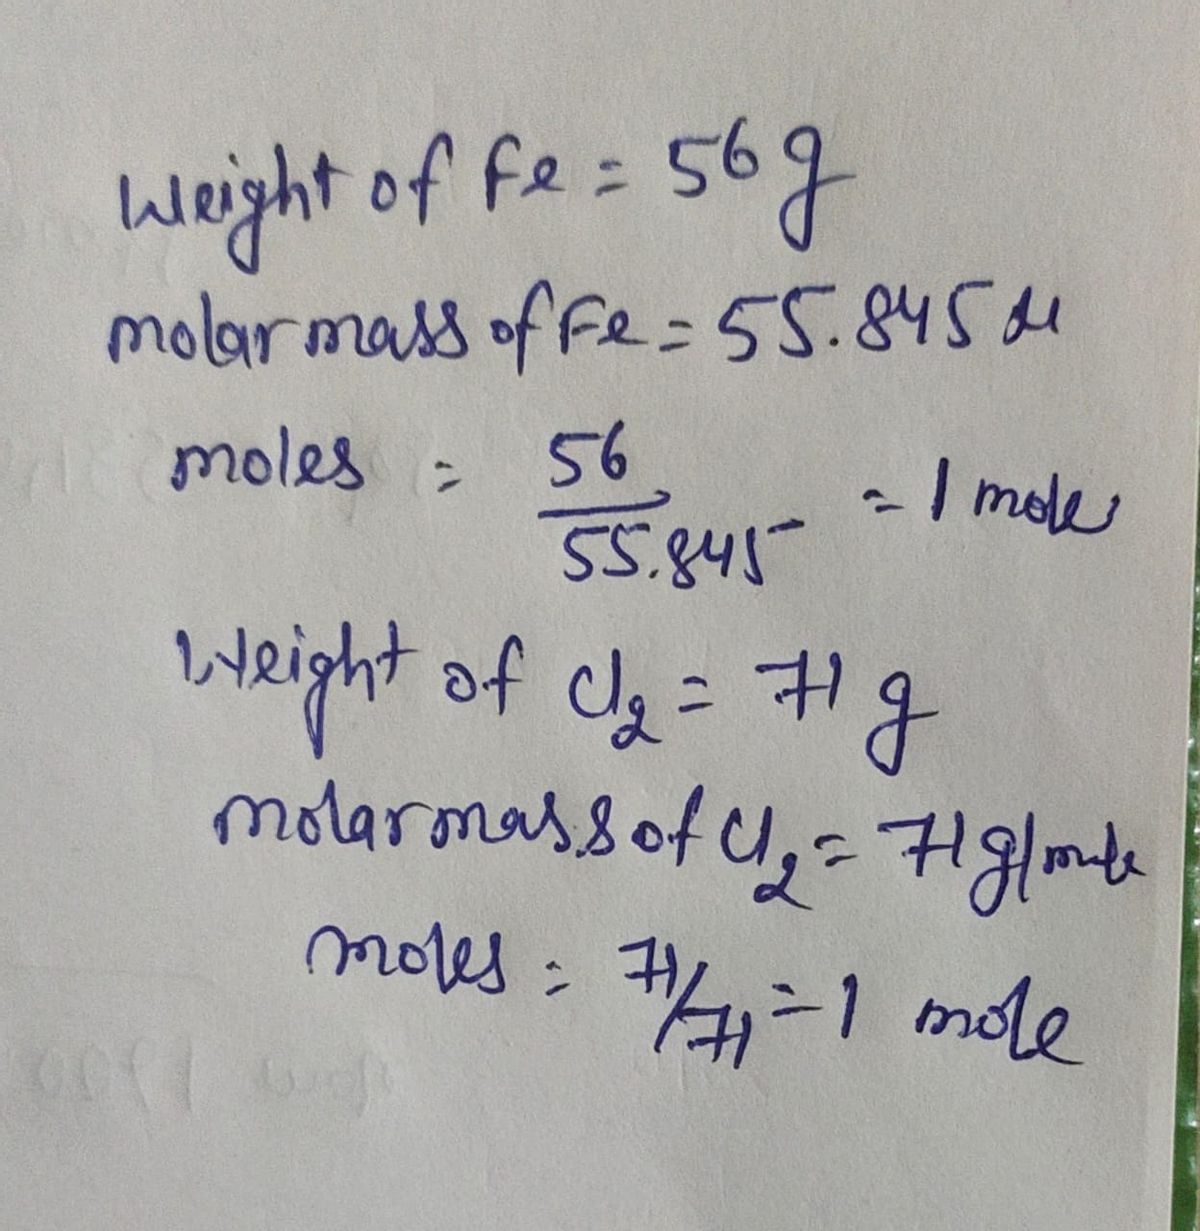 Weight of Fe = 56 g
molar mass of Fe = 55.845 u
moles = 56/55.845 = 1 mole
Weight of Cl2 = 71 g
molar mass of Cl2 = 71 g/mole
moles = 71/71 = 1 mole